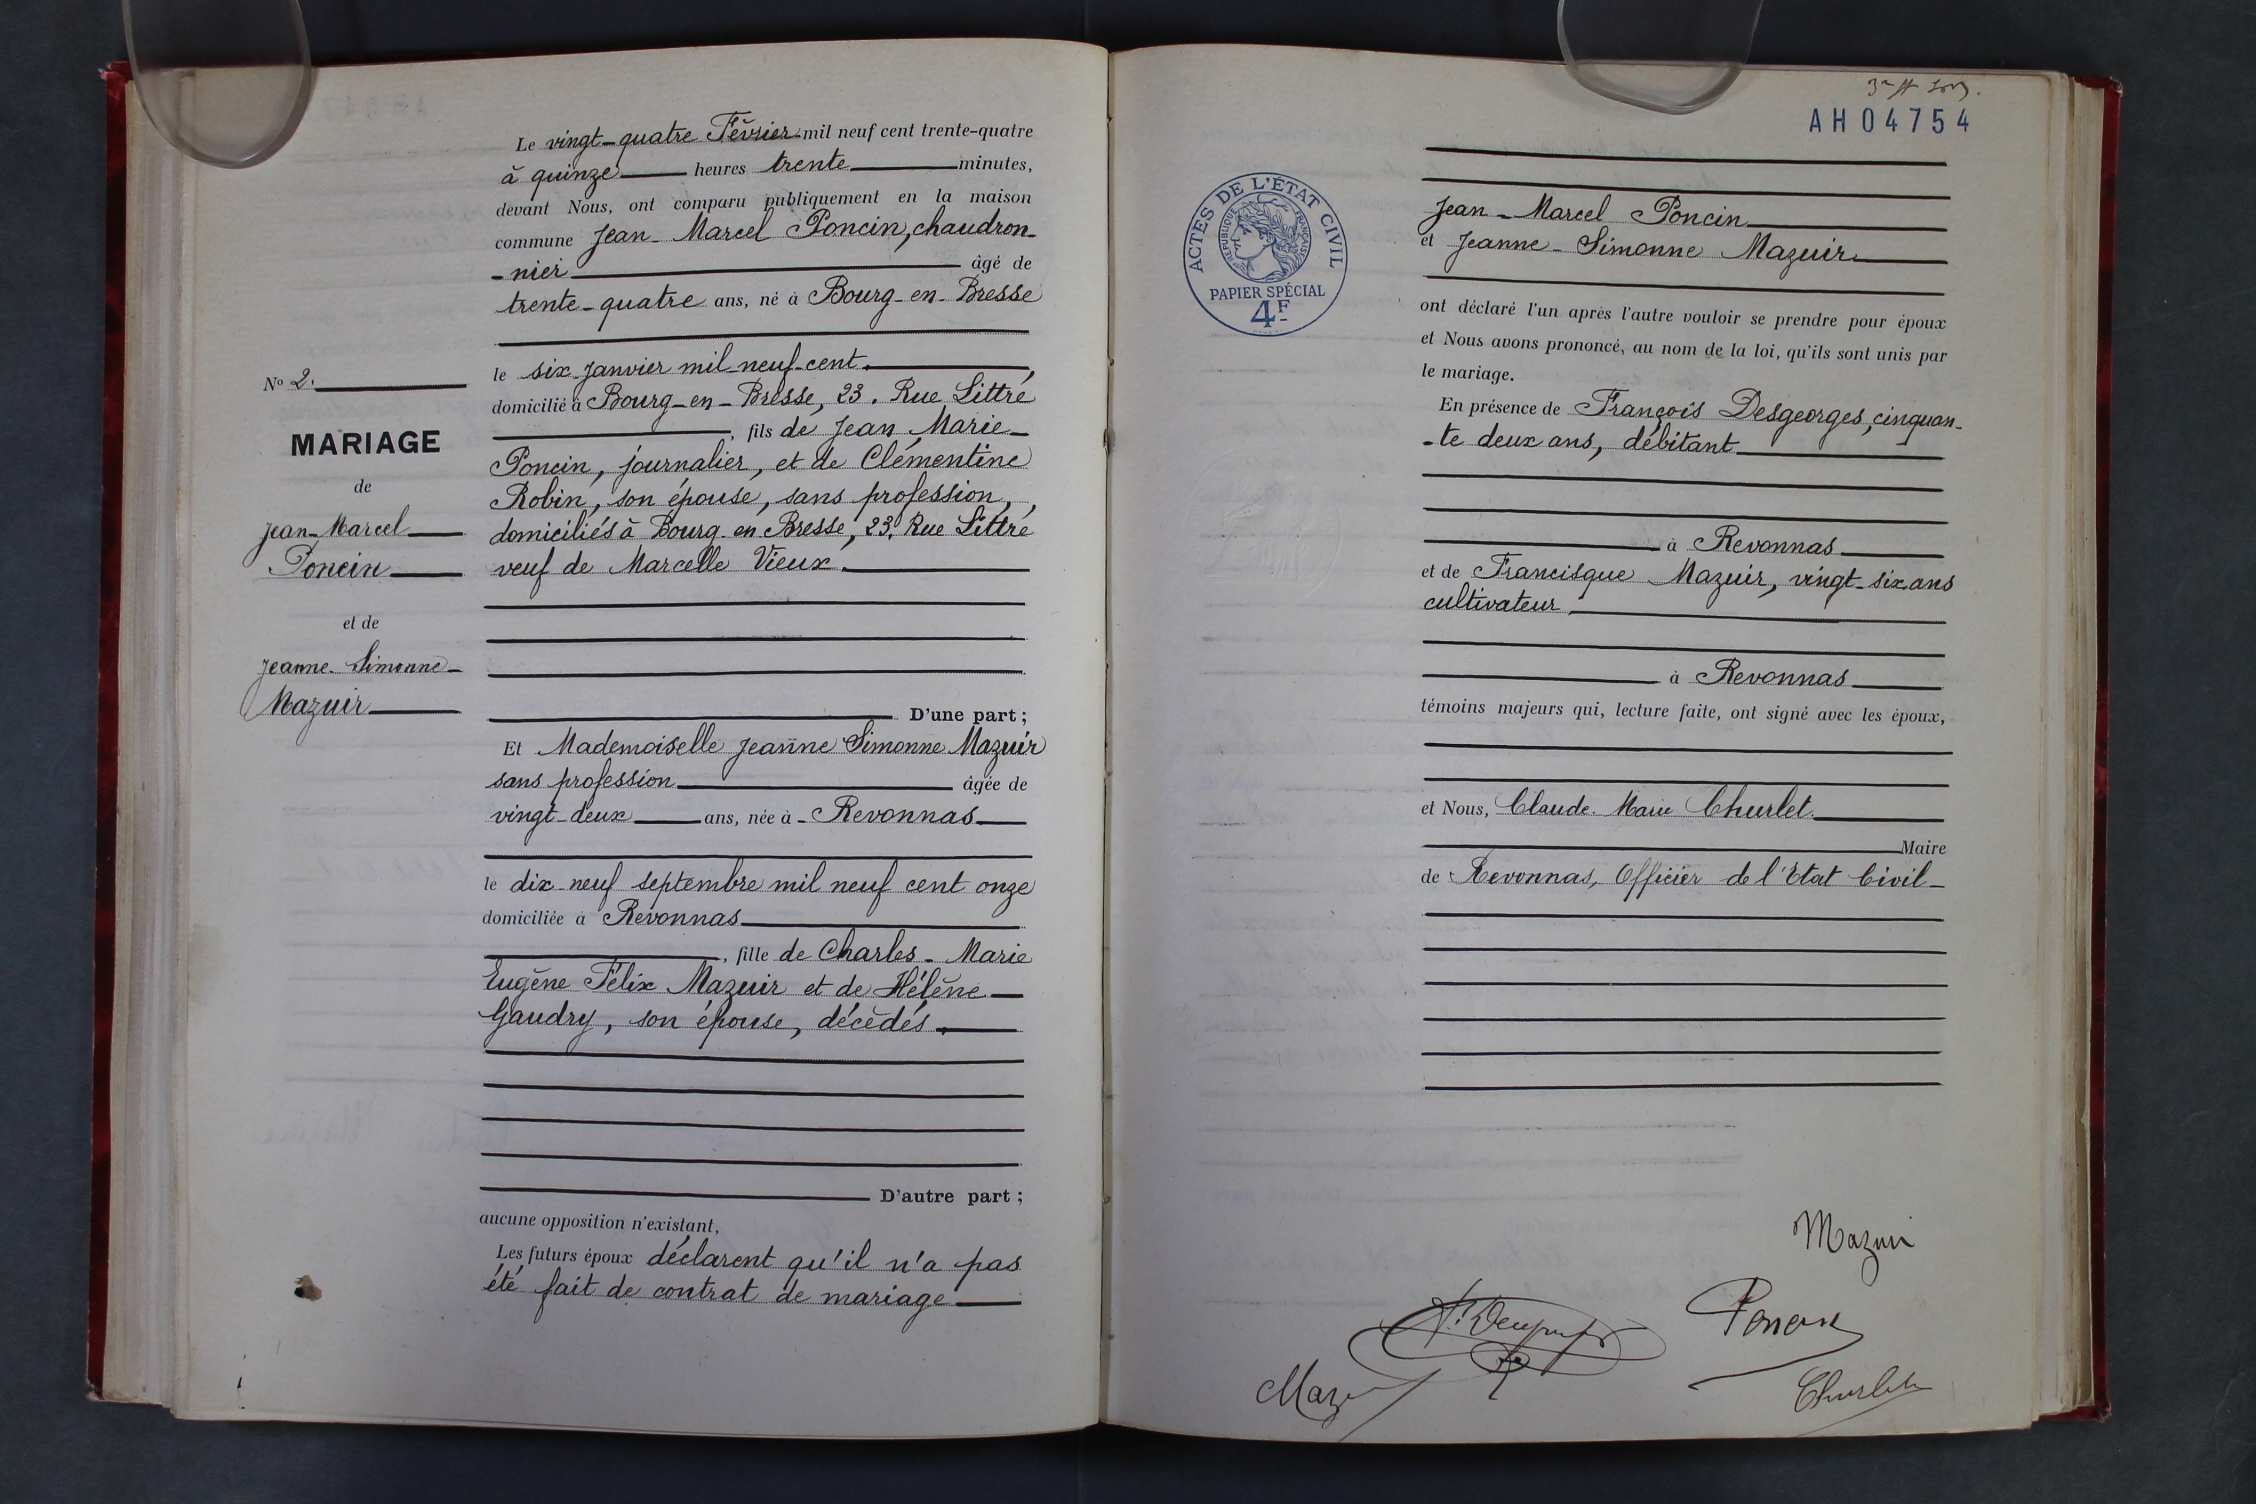 Le vingt-quatre Février mil neuf cent trente-quatre
à quinze heures trente minutes,
devant Nous, ont comparu publiquement en la maison
commune Jean-Marcel Poncin, chaudron-
-nier âgé de
trente-quatre ans, né à Bourg-en-Bresse
le six janvier mil neuf-cent,
domicilié à Bourg-en-Bresse, 23. Rue Littré
, fils de Jean Marie
Poncin, journalier, et de Clémentine
Robin, son épouse, sans profession,
domiciliés à Bourg-en-Bresse, 23. Rue Littré
veuf de Marcelle Vieux.
D'une part;
Nº 2.
MARIAGE
de
Jean-Marcel
Poncin
et de
Jeanne-Simonne
Mazuir
Et Mademoiselle Jeanne Simonne Mazuir
sans profession âgée de
vingt-deux ans, née à Revonnas
le dix-neuf septembre mil neuf cent onze
domiciliée à Revonnas
, fille de Charles-Marie
Eugène Félix Mazuir et de Hélène
Gaudry, son épouse, décédés.
D'autre part;
aucune opposition n'existant,
Les futurs époux déclarent qu'il n'a pas
été fait de contrat de mariage
AH04754
ACTES DE L'ÉTAT CIVIL
RÉPUBLIQUE FRANÇAISE
PAPIER SPÉCIAL
4F
Jean-Marcel Poncin
et Jeanne-Simonne Mazuir
ont déclaré l'un après l'autre vouloir se prendre pour époux
et Nous avons prononcé, au nom de la loi, qu'ils sont unis par
le mariage.
En présence de François Desgeorges, cinquan-
-te deux ans, débitant
à Revonnas
et de Francisque Mazuir, vingt-six ans
cultivateur
à Revonnas
témoins majeurs qui, lecture faite, ont signé avec les époux,
et Nous, Claude-Marie Churlet
Maire
de Revonnas, Officier de l'Etat Civil
Mazuir
Poncin
Churlet